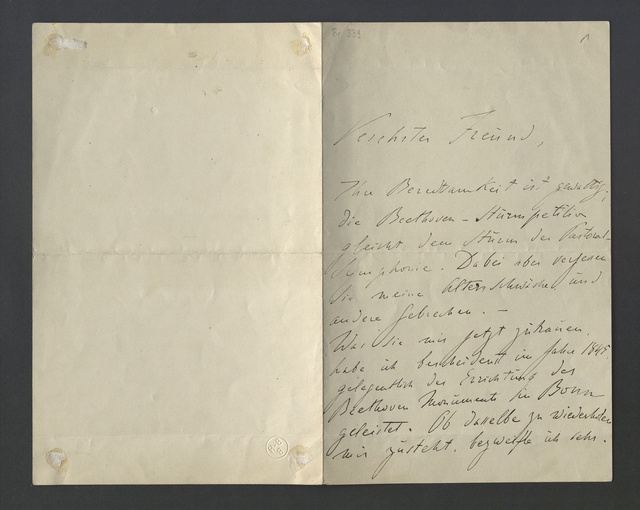 Br. 331
Verehrter Freund,
Ihre Beredtsamkeit ist gewaltig,
die Beethoven-Sturmpetition
gleicht dem Sturm der Pastoral-
Symphonie. Dabei aber vergessen
Sie meine Altersschwäche und
andere Gebrechen. —
Was Sie mir jetzt zutrauen
habe ich bescheidenst im Jahre 1845
gelegentlich der Errichtung des
Beethoven Monuments in Bonn
geleistet. Ob dasselbe zu wiederholen
mir zusteht, bezweifle ich sehr.